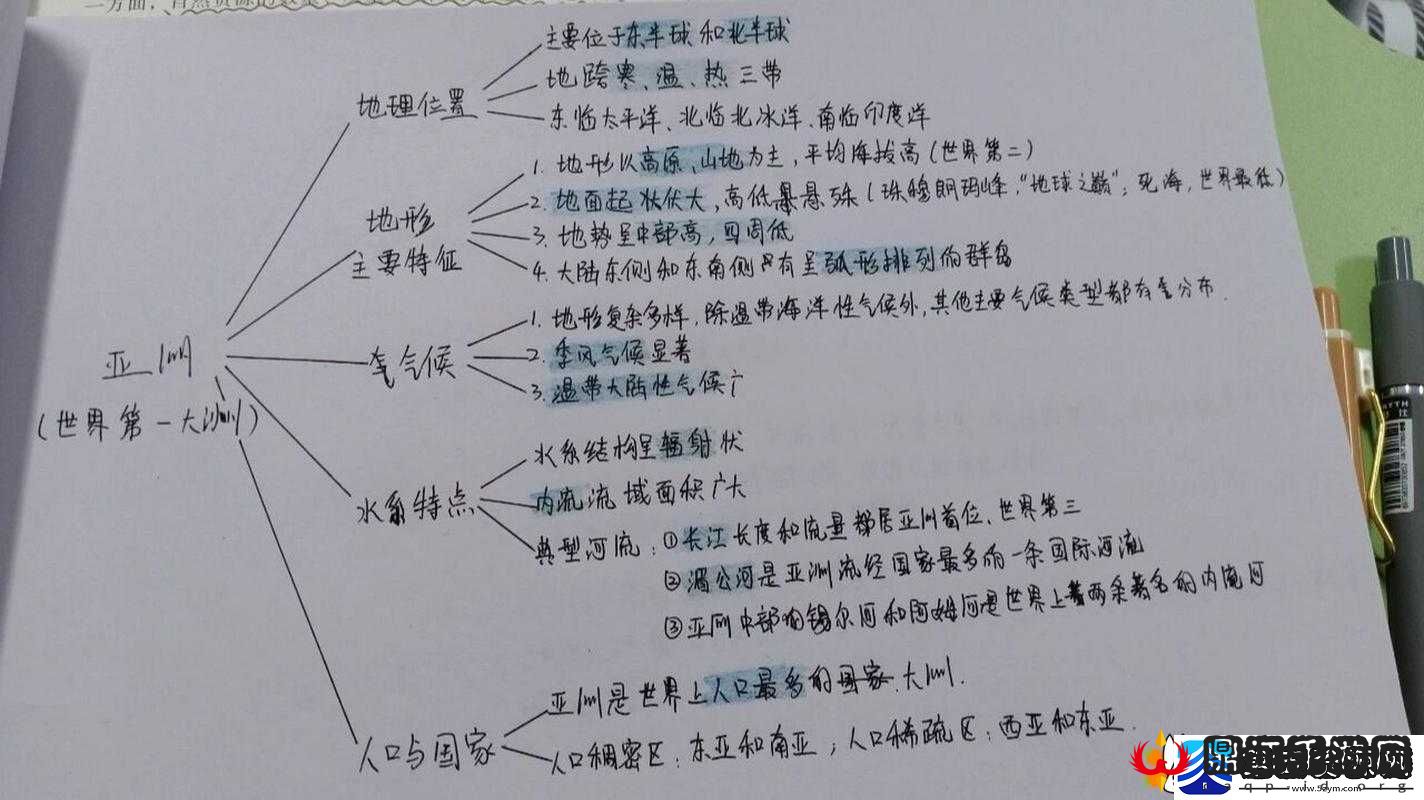 主要位于东半球和北半球
地跨寒、温、热三带
地理位置
东临太平洋、北临北冰洋、南临印度洋
1. 地形以高原、山地为主，平均海拔高（世界第二）
2. 地面起伏大，高低悬殊（珠穆朗玛峰，“地球之巅”；死海，世界最低）
地形
主要特征
3. 地势呈中部高，四周低
4. 大陆东侧和东南侧有呈弧形排列的群岛
1. 地形复杂多样，除温带海洋性气候外，其他主要气候类型都有分布.
气候
2. 季风气候显著
3. 温带大陆性气候广
亚洲
（世界第一大洲）
水系结构呈辐射状
水系特点
内流流域面积广大
典型河流：①长江长度和流量都居亚洲首位、世界第三
②湄公河是亚洲流经国家最多的一条国际河流
③亚洲中部的锡尔河和阿姆河是世界上著两条著名的内流河
亚洲是世界上人口最多的国家大洲.
人口与国家
人口稠密区：东亚和南亚；人口稀疏区：西亚和东亚.
www.5zym.com